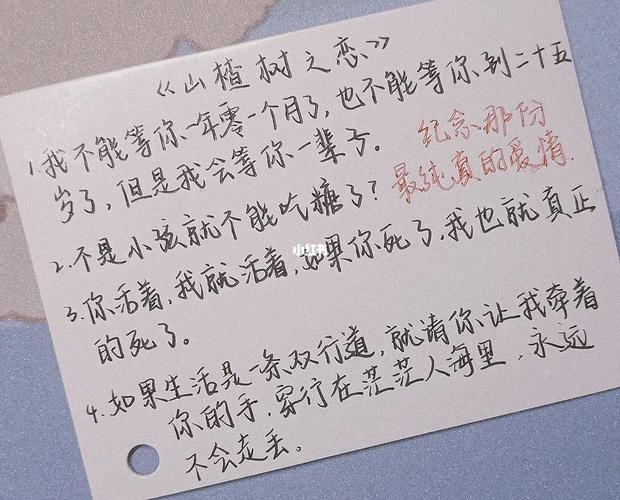 《山楂树之恋》
1.我不能等你一年零一个月了,也不能等你到二十五
岁了,但是我会等你一辈子。
纪念那份
最纯真的爱情.
2.不是小孩就不能吃糖了?
小红书
3.你活着,我就活着,如果你死了,我也就真正
的死了。
4.如果生活是一条双行道,就请你让我牵着
你的手,穿行在茫茫人海里,永远
不会走丢。